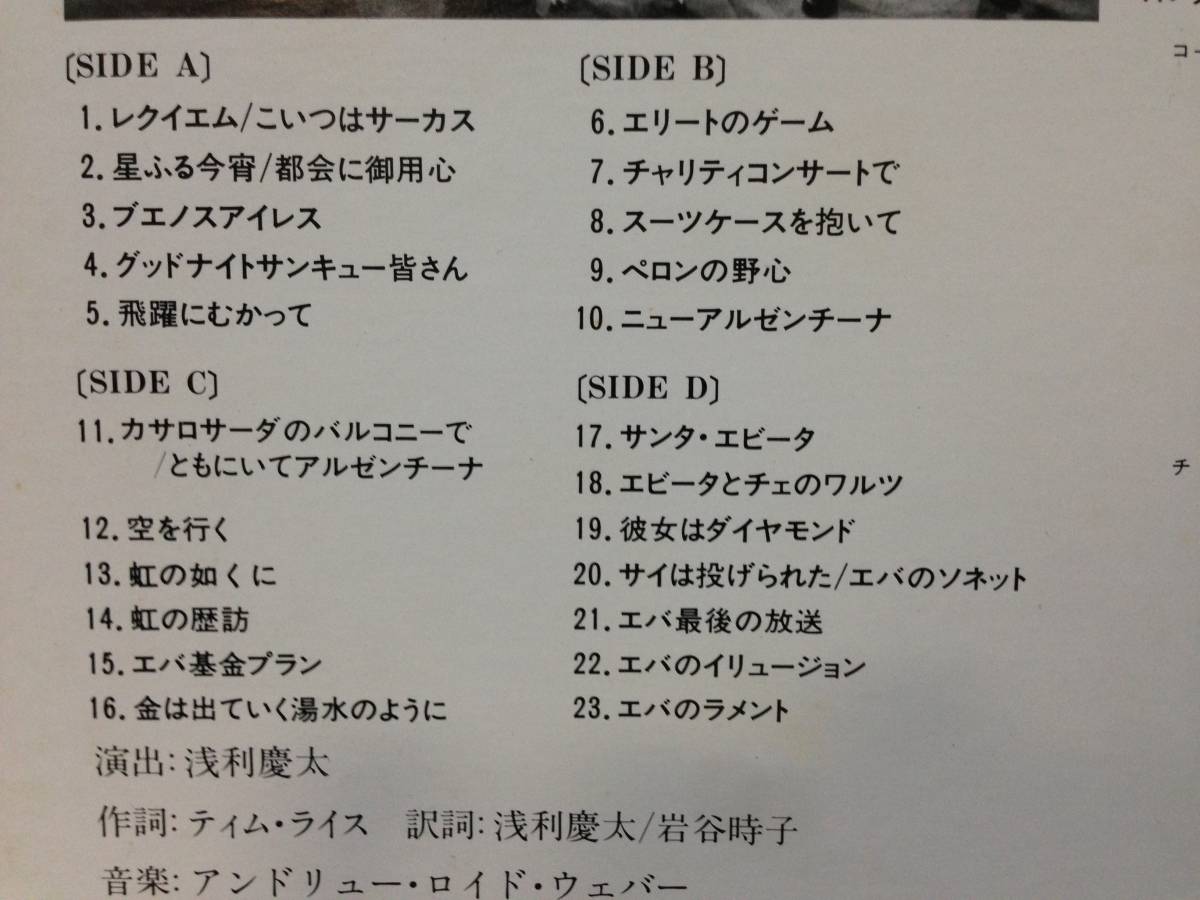 〔SIDE A〕
1.レクイエム/こいつはサーカス
2.星ふる今宵/都会に御用心
3.ブエノスアイレス
4.グッドナイトサンキュー皆さん
5.飛躍にむかって
〔SIDE B〕
6.エリートのゲーム
7.チャリティコンサートで
8.スーツケースを抱いて
9.ペロンの野心
10.ニューアルゼンチーナ
〔SIDE C〕
11.カサロサーダのバルコニーで
/ともにいてアルゼンチーナ
12.空を行く
13.虹の如くに
14.虹の歴訪
15.エバ基金プラン
16.金は出ていく湯水のように
〔SIDE D〕
17.サンタ・エビータ
18.エビータとチェのワルツ
19.彼女はダイヤモンド
20.サイは投げられた/エバのソネット
21.エバ最後の放送
22.エバのイリュージョン
23.エバのラメント
演出:浅利慶太
作詞:ティム・ライス 訳詞:浅利慶太/岩谷時子
音楽:アンドリュー・ロイド・ウェバー
コー
チ